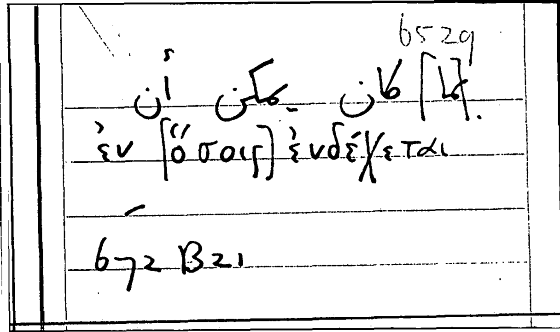 6529
[ما] كان يمكن أن
ἐν [ὅσοις] ἐνδέχεται
672 B21